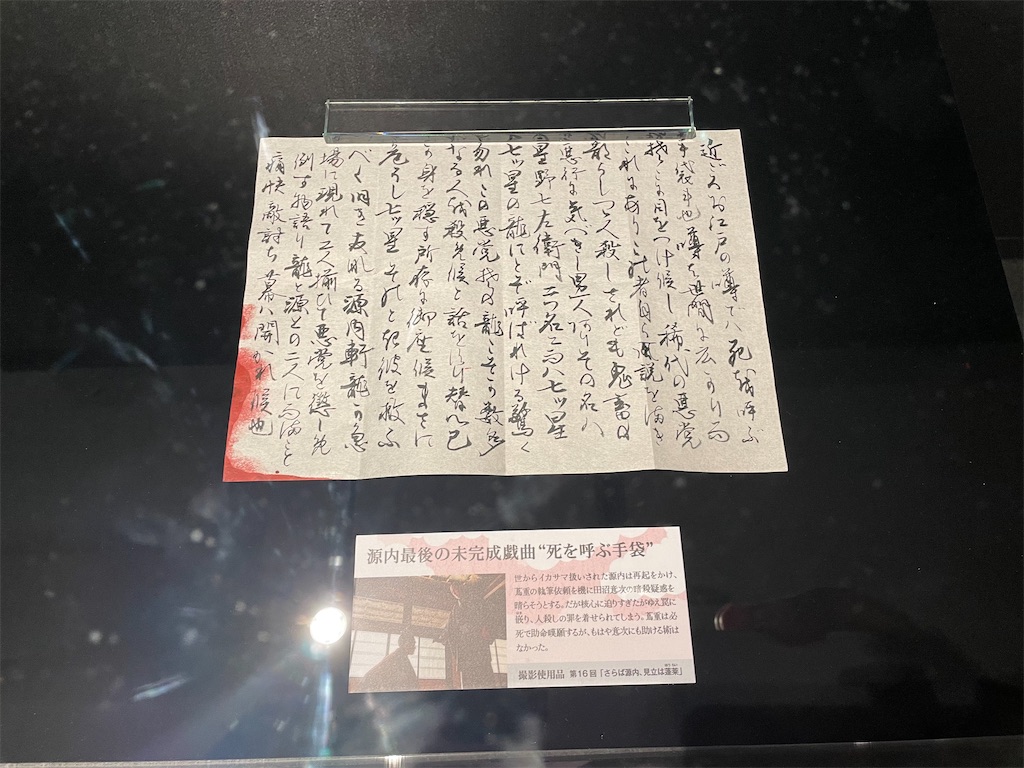 近ごろお江戸の噂で八死を呼ぶ
手袋 也 噂は巷間に広がり而
目をつけ候し稀代の悪党
これにあり この者自ら 説を
つつ人殺し されども鬼畜の
悪行に気づきし男一人 その名ハ
星野七左衛門 二つ名 而八七ツ星
七ツ星の龍 にとぞ呼ばれける 驚く
勿れこの悪党 龍こそが数多
なる人を殺め候と話をすり替へ己
が身を穏す所存に御座候 まさに
危うし七ツ星 そのとき彼を救ふ
べく旧き友 なる源内軒 龍が急
場に現れて二人揃ひて悪党を懲しめ
倒す物語り 龍と源との二人に而まこと
痛快敵討ち 幕ハ開かれ候也
源内最後の未完成戯曲“死を呼ぶ手袋”
世からイカサマ扱いされた源内は再起をかけ、
蔦重の執筆依頼を機に田沼意次の暗殺疑惑を
晴らそうとする。だが核心に迫りすぎたがゆえ罠に
嵌り、人殺しの罪を着せられてしまう。蔦重は必
死で助命嘆願するが、もはや意次にも助ける術は
なかった。
撮影使用品 第16回「さらば源内、見立は蓬莱」